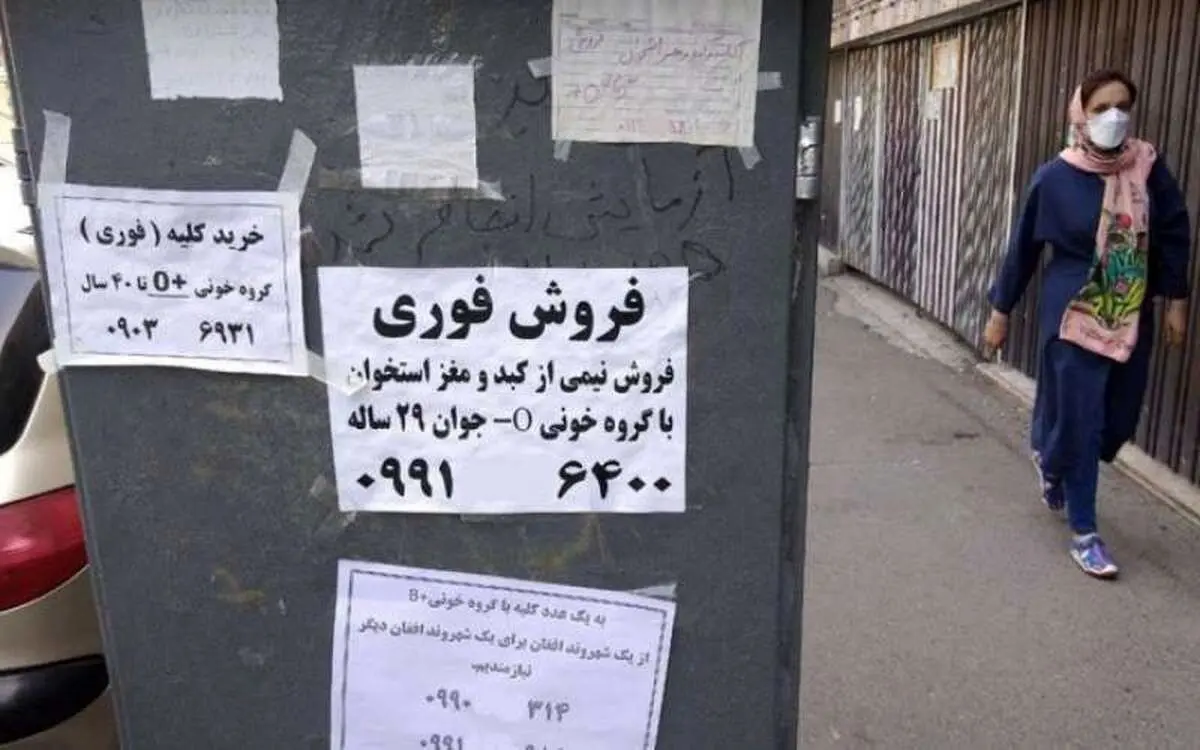 خرید کلیه ( فوری )
گروه خونی +O تا ۴۰ سال
۰۹۰۳ ۶۹۳۱
فروش فوری
فروش نیمی از کبد و مغز استخوان
با گروه خونی O− جوان ۲۹ ساله
۰۹۹۱ ۶۴۰۰
به یک عدد کلیه با گروه خونی+B
از یک شهروند افغان برای یک شهروند افغان دیگر
نیازمندیم.
۰۹۹۰ ۳۱۴
۰۹۹۱
فروش
آزمایش انجام